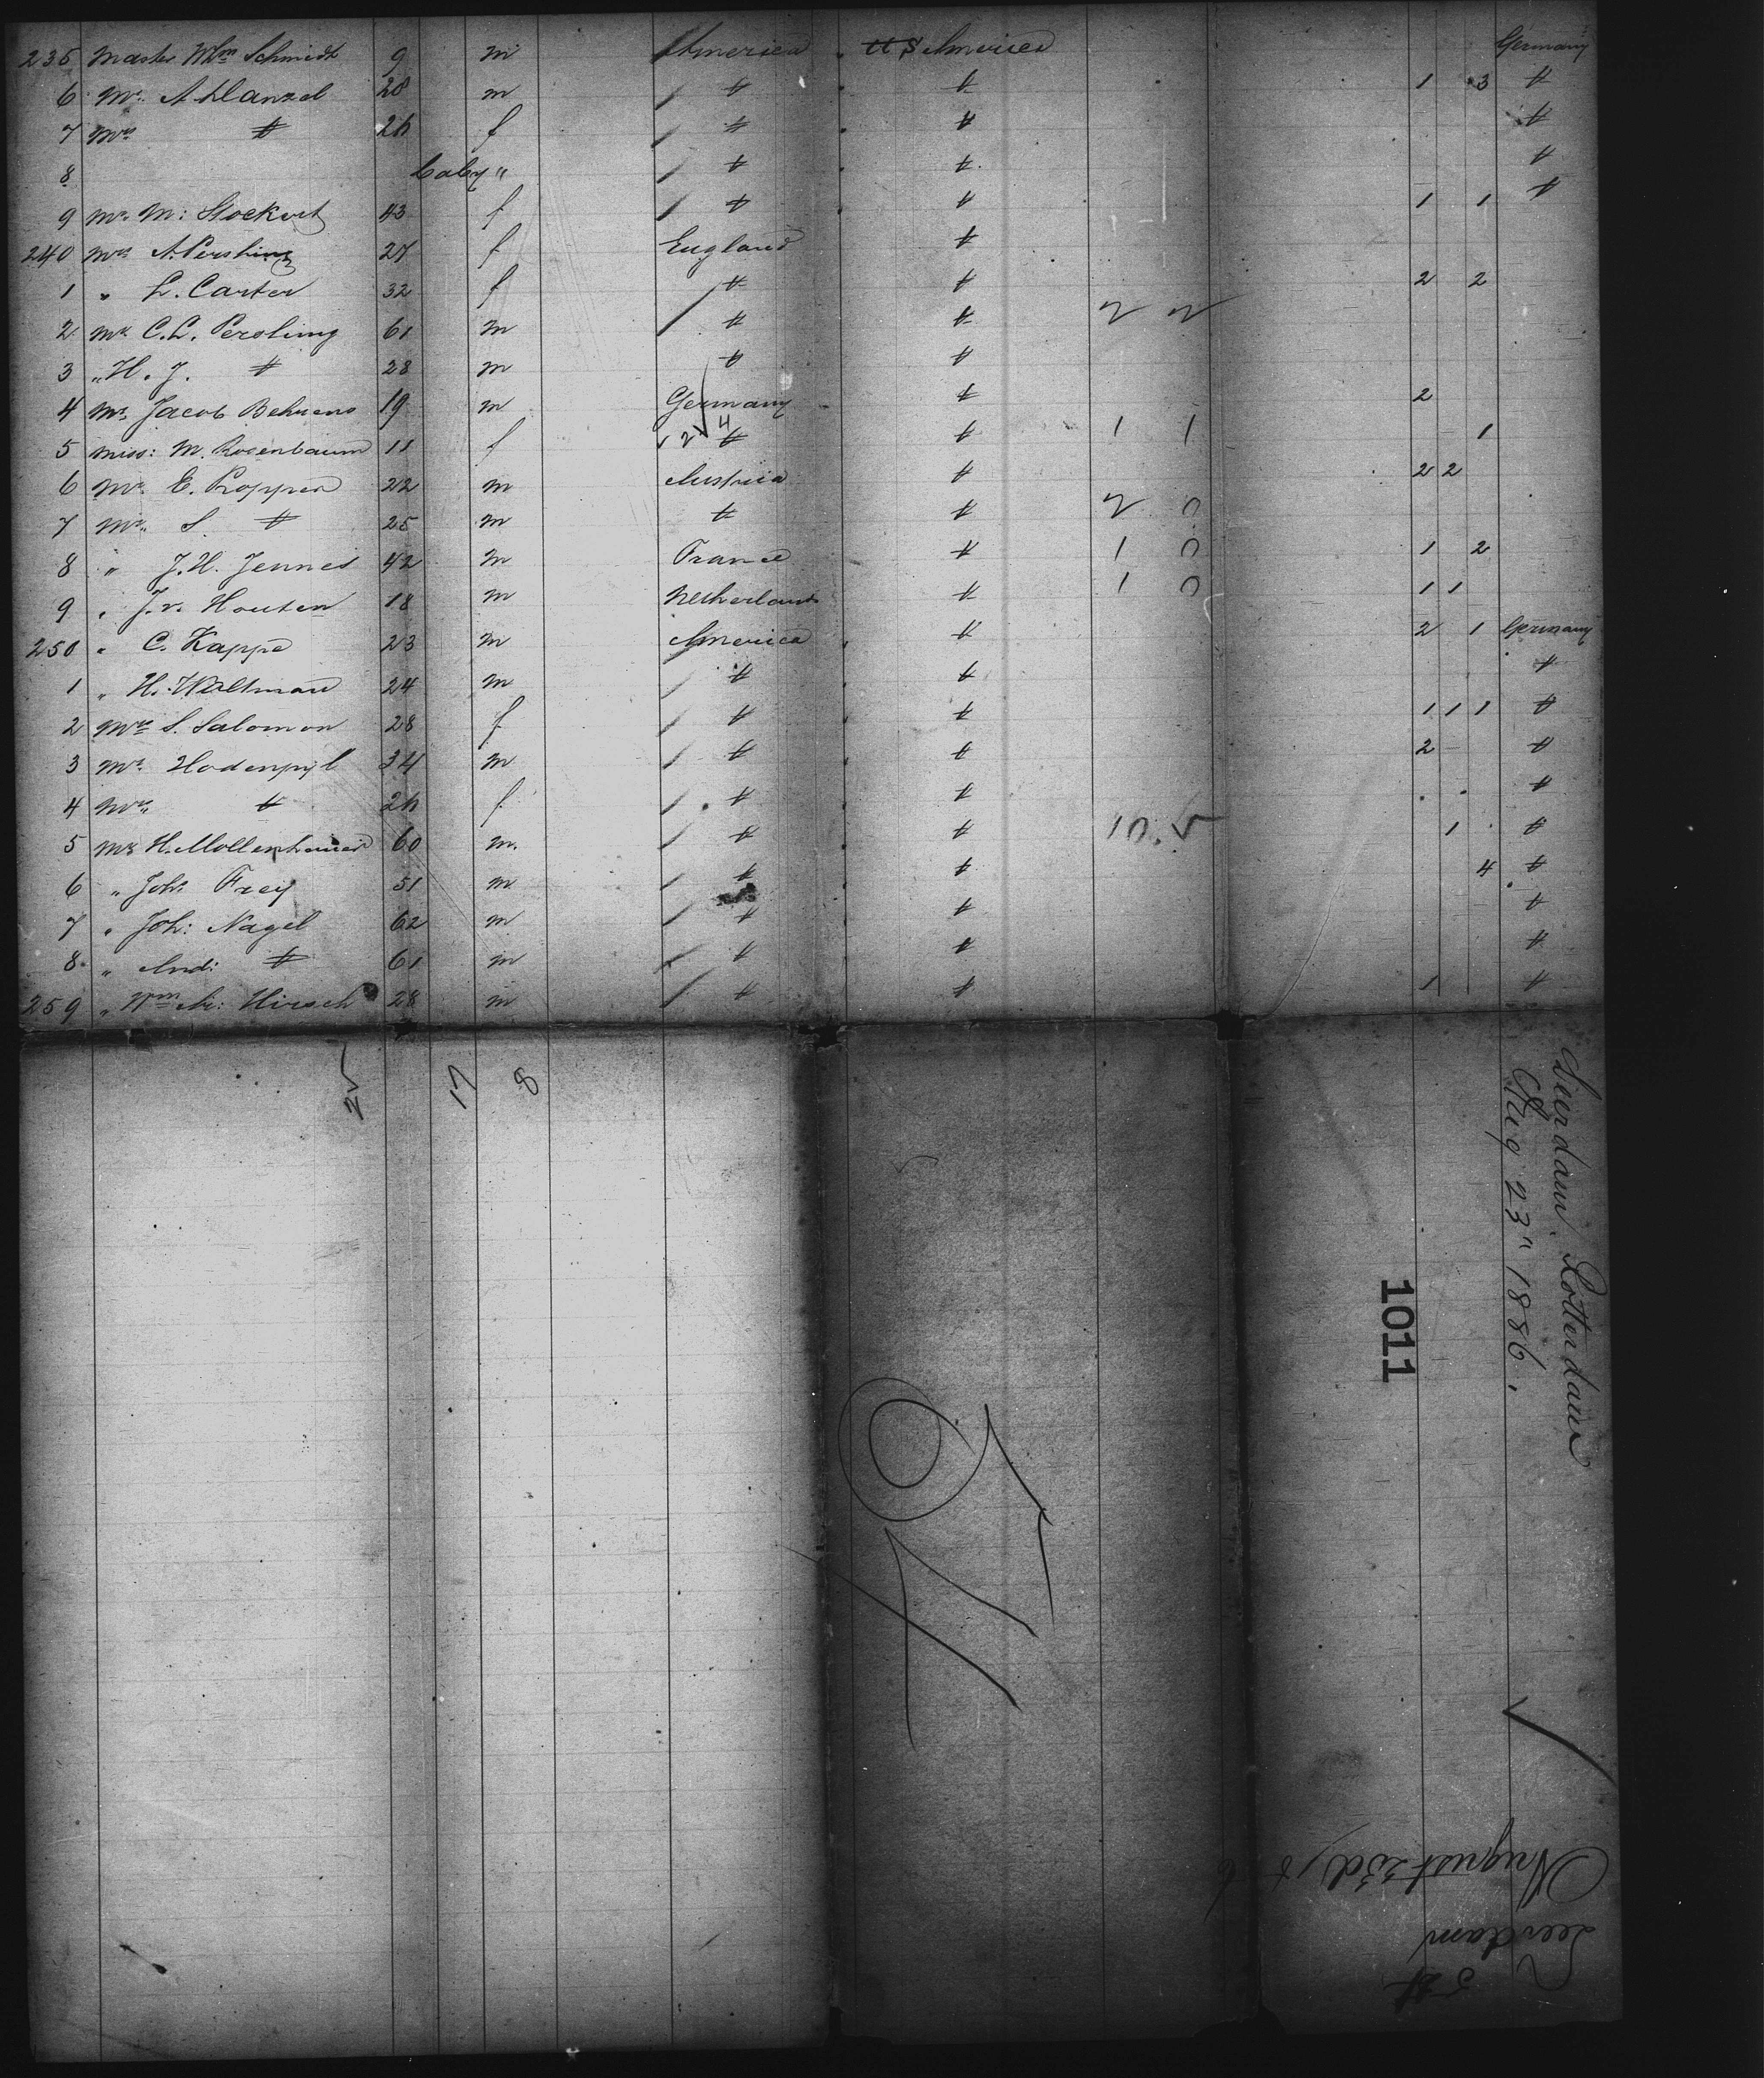 235 Master Wm Schmidt 9 m America U S America Germany
6 Mr. A 28 m " " 1 3 "
7 Mrs " 26 f " " "
8 baby " " " "
9 Mrs M: Stockert 43 f " " 1 1 "
240 Mrs A. Pershing 27 f England "
1 " L. Carter 32 f " " 2 2
2 Mr C. L. Pershing 61 m " " 2 2
3 " H. J. " 28 m " "
4 Mr. Jacob Behrens 19 m Germany " 2
5 Miss: M. Rosenbaum 11 f 2 4 " " 1 1 1
6 Mr. E. 22 m Austria " 2 2
7 Mr. S. " 25 m " " 2 0
8 " J. H. Jennes 42 m France " 1 0 1 2
9 " J. v. Houten 18 m Netherlands " 1 0 1 1
250 " C. Kappe 23 m America " 2 1 Germany
1 " H. Waltman 24 m " " "
2 Mrs S. Salomon 28 f " " 1 1 1 "
3 Mr. Hodenpijl 34 m " " 2 "
4 Mrs. " 26 f " " "
5 Mr H. Mollenhauer 60 m. " " 10. 5 1 "
6 " Joh: Frey 51 m " " 4 "
7 " Joh: Nagel 62 m " " "
8 " And: " 61 m " " "
259 " Wm Hirsch 28 m " " 1 "
8
Leerdam. Rotterdam
Aug 23" 1886.
1011
August 23d
Leerdam